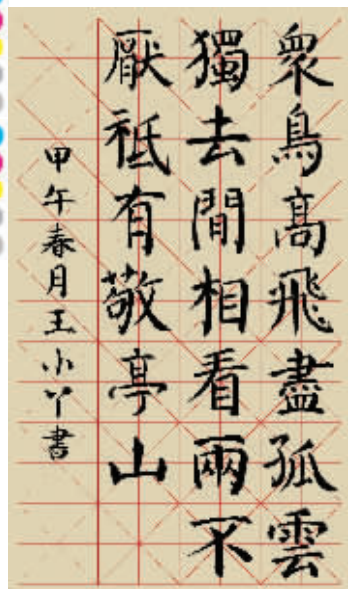 眾鳥高飛盡孤雲
獨去間相看兩不
厭祗有敬亭山
甲午春月王小丫書